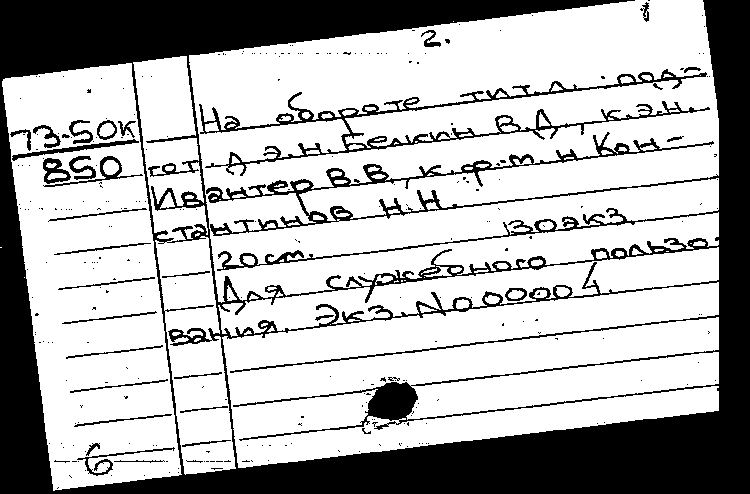 2.
73-50к
850
На обороте тит.л. : под=
гот. д.э.н. Белкин В.Д., к.э.н.
Ивантер В.В., к.ф.-м.н Кон-
стантинов Н.Н.
20 см. 130 экз.
Для служебного пользо-
вания. Экз. № 00004.
6